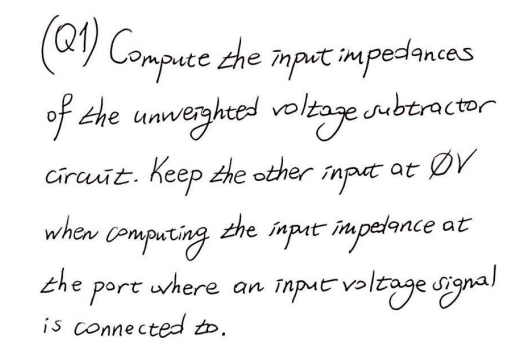 (Q1) Compute the input impedances
of the unweighted voltage subtractor
circuit. Keep the other input at ØV
when computing the input impedance at
the port where an input voltage signal
is connected to.